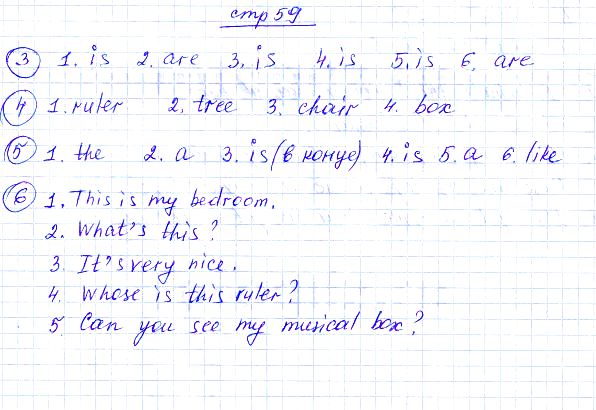 стр 59
3 1. is 2. are 3. is 4. is 5. is 6. are
4 1. ruler 2. tree 3. chair 4. box
5 1. the 2. a 3. is (в конце) 4. is 5. a 6. like
6 1. This is my bedroom.
2. What's this?
3. It's very nice.
4. Whose is this ruler?
5 Can you see my musical box?